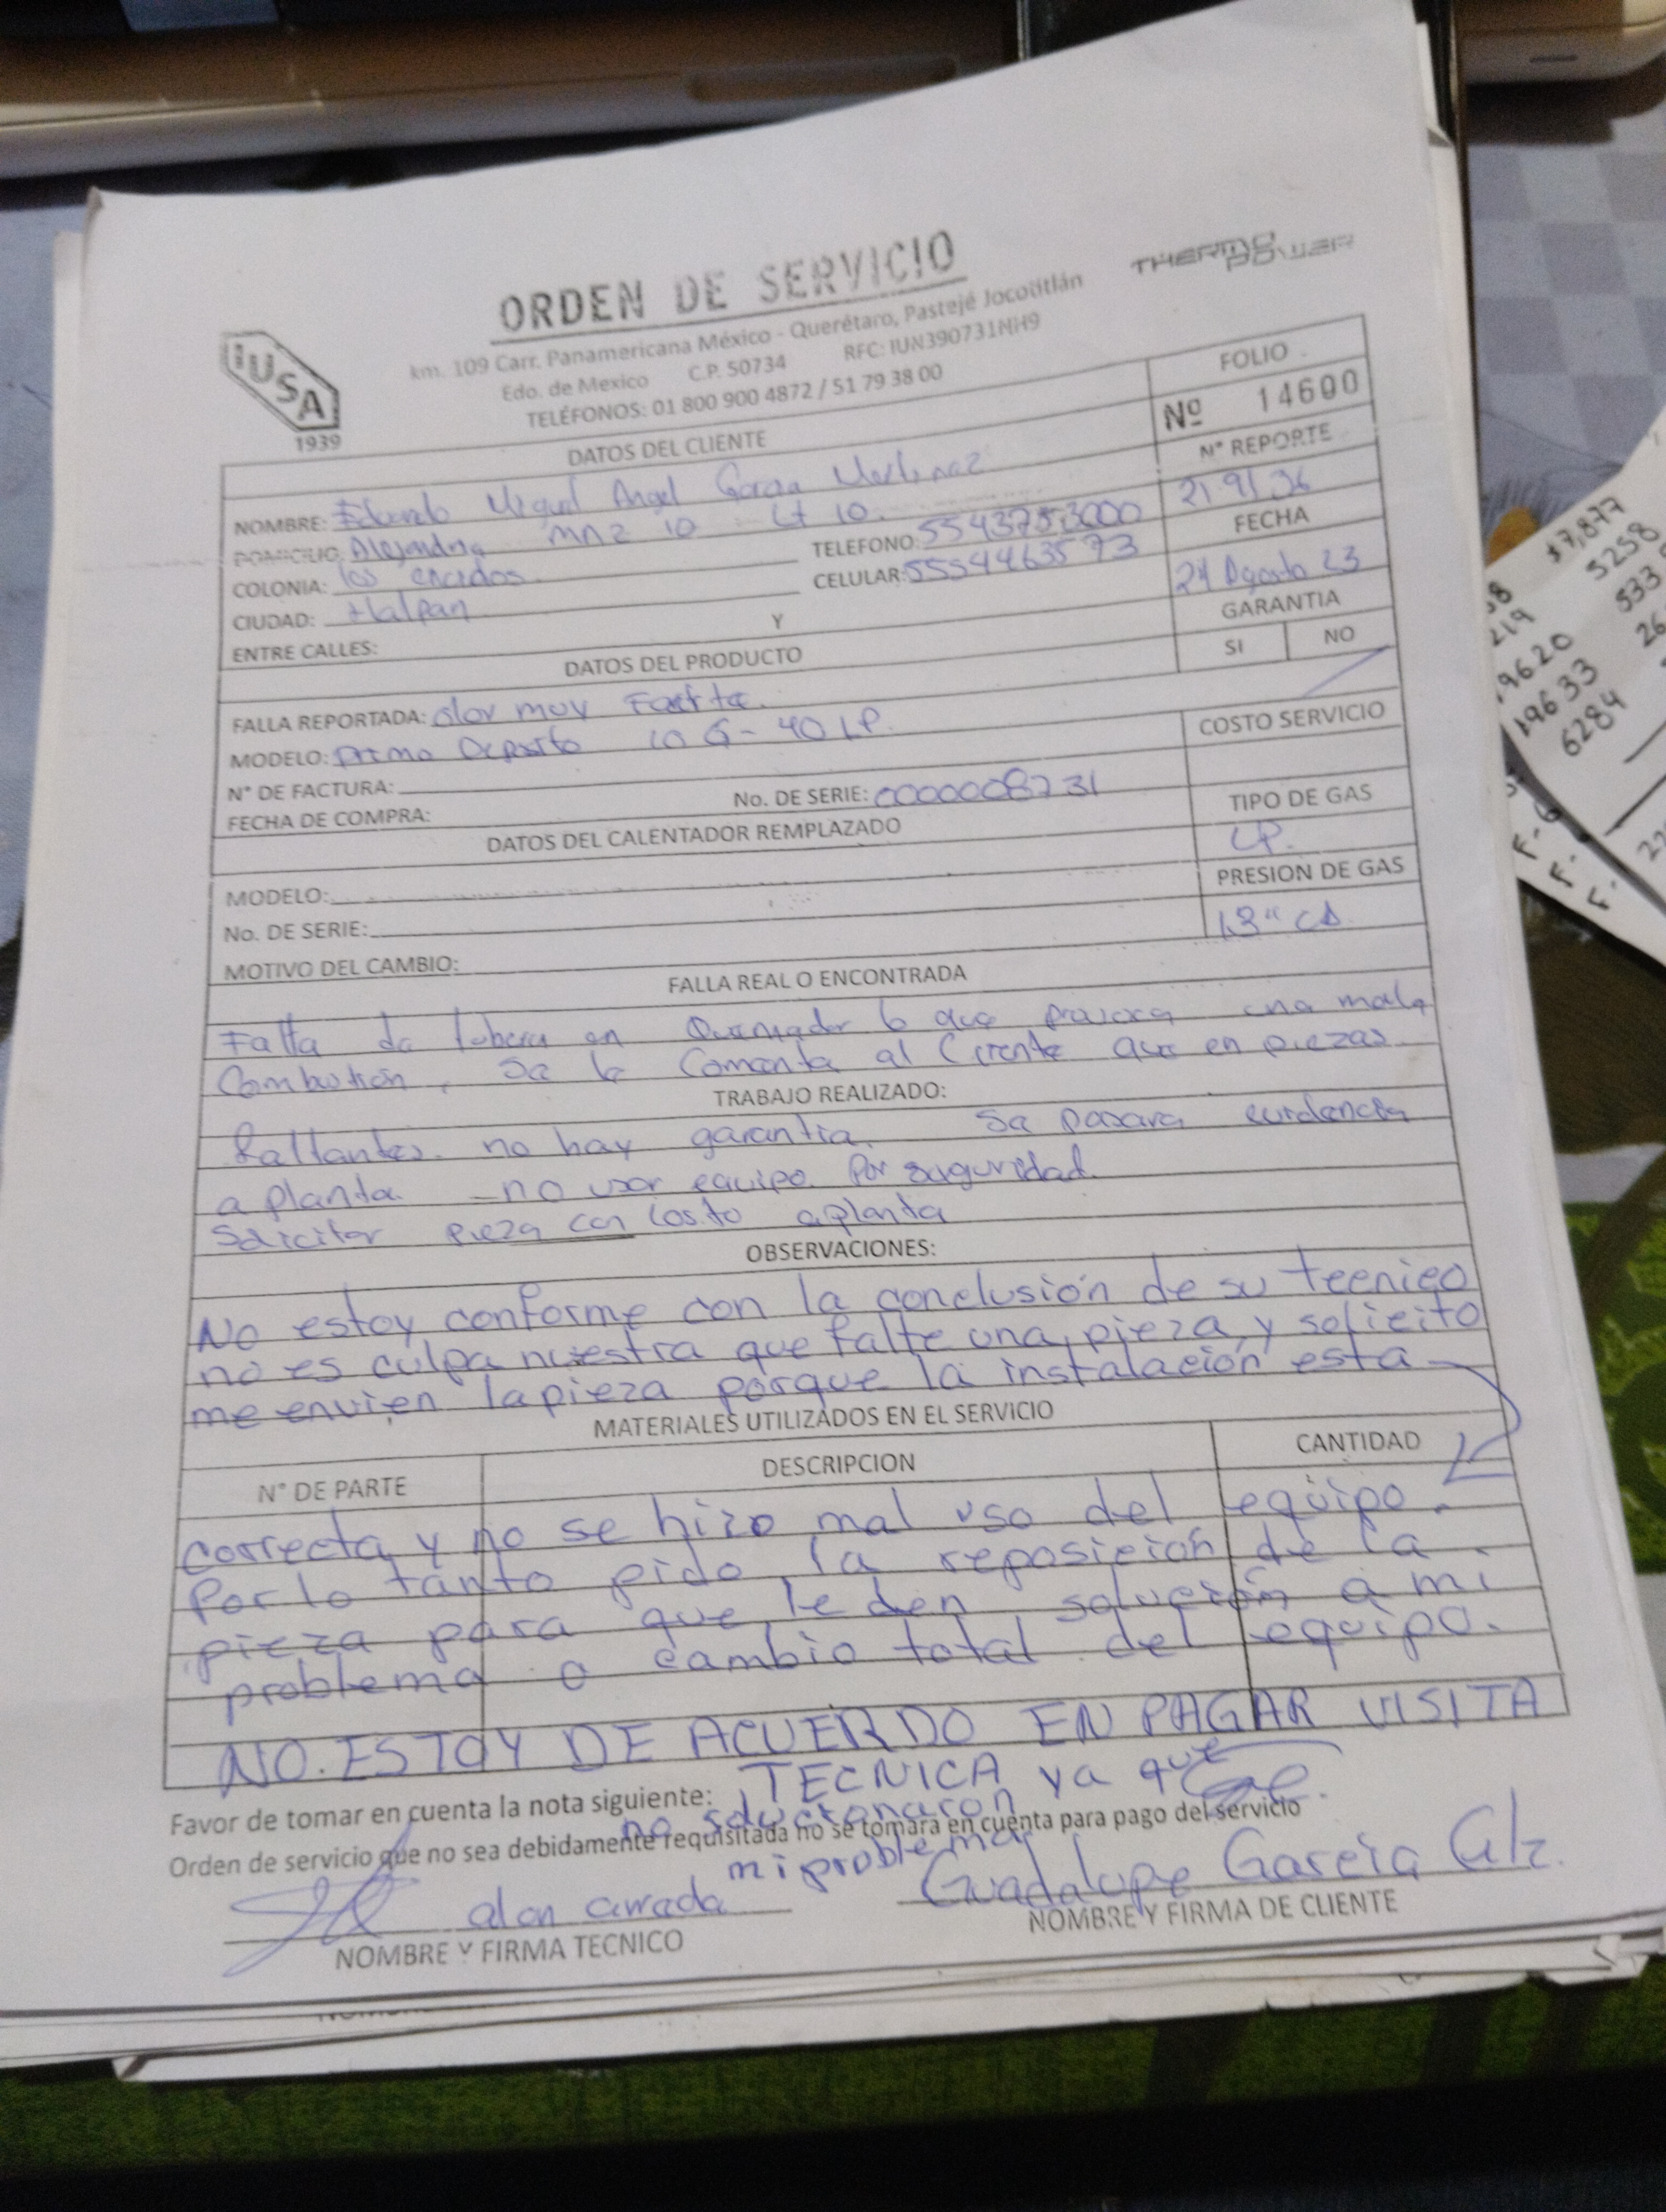 ORDEN DE SERVICIO
THERMO POWER
IUSA
1939
km. 109 Carr. Panamericana México - Querétaro, Pastejé Jocotitlán
Edo. de Mexico C.P. 50734 RFC: IUN390731NH9
TELÉFONOS: 01 800 900 4872 / 51 79 38 00
FOLIO
Nº 14600
DATOS DEL CLIENTE
Nº REPORTE
NOMBRE: Miguel Angel Garcia
DOMICILIO: Mnz 10 Lt 10
TELEFONO: 5543753000
FECHA
COLONIA: los encinos
CELULAR: 5554463573
24 Agosto 23
CIUDAD: tlalpan
GARANTIA
ENTRE CALLES: Y
SI NO
DATOS DEL PRODUCTO
FALLA REPORTADA: olor muy
COSTO SERVICIO
MODELO: Primo Deposito G-40 LP.
N° DE FACTURA:
No. DE SERIE: 0000008731
TIPO DE GAS
FECHA DE COMPRA:
LP.
DATOS DEL CALENTADOR REMPLAZADO
PRESION DE GAS
MODELO:
No. DE SERIE:
MOTIVO DEL CAMBIO:
FALLA REAL O ENCONTRADA
Falta en Quemador lo que una mala
Combustion, se le Comenta al que en piezas
TRABAJO REALIZADO:
faltantes. no hay garantia. Se pasara evidencia
a planta. - no usar equipo. Por seguridad.
Solicitar pieza con costo a planta
OBSERVACIONES:
No estoy conforme con la conclusión de su tecnico
no es culpa nuestra que falte una pieza, y solicito
me envien la pieza porque la instalación esta
MATERIALES UTILIZADOS EN EL SERVICIO
N° DE PARTE DESCRIPCION CANTIDAD
correcta y no se hizo mal uso del equipo.
Por lo tanto pido la reposición de la
pieza para que le den solución a mi
problema o cambio total del equipo.
NO. ESTOY DE ACUERDO EN PAGAR VISITA
TECNICA ya que
Favor de tomar en cuenta la nota siguiente:
no solucionaron
Orden de servicio que no sea debidamente requisitada no se tomará en cuenta para pago del servicio
mi problema
Guadalupe Garcia Glz.
NOMBRE Y FIRMA TECNICO
NOMBRE Y FIRMA DE CLIENTE
$7,877
5258
533
219
19620
19633
6284